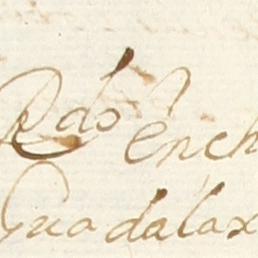 Rdo en ch
Guadalax